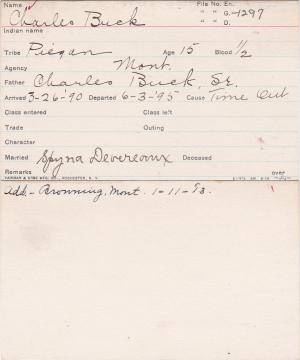 Name File No. En.
Charles Buck " " G-1297
Indian name " " D.
Tribe Piegan Age 15 Blood 1/2
Agency Mont.
Father Charles Buck, Sr.
Arrived 3-26-'90 Departed 6-3-'95 Cause Time Out
Class entered Class left
Trade Outing
Character
Married Spyna Devereaux Deceased
Remarks over
add - Browning, Mont. 1-11-'93.